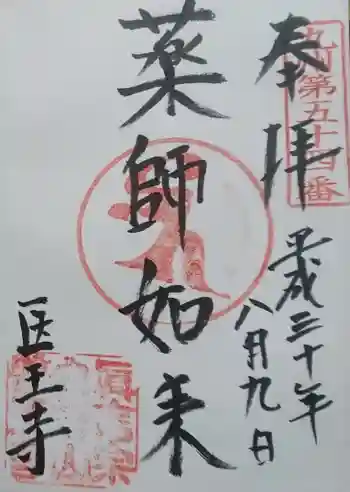 奉拝
九州第五十四番
平成三十年
八月九日
薬師如来
医王寺